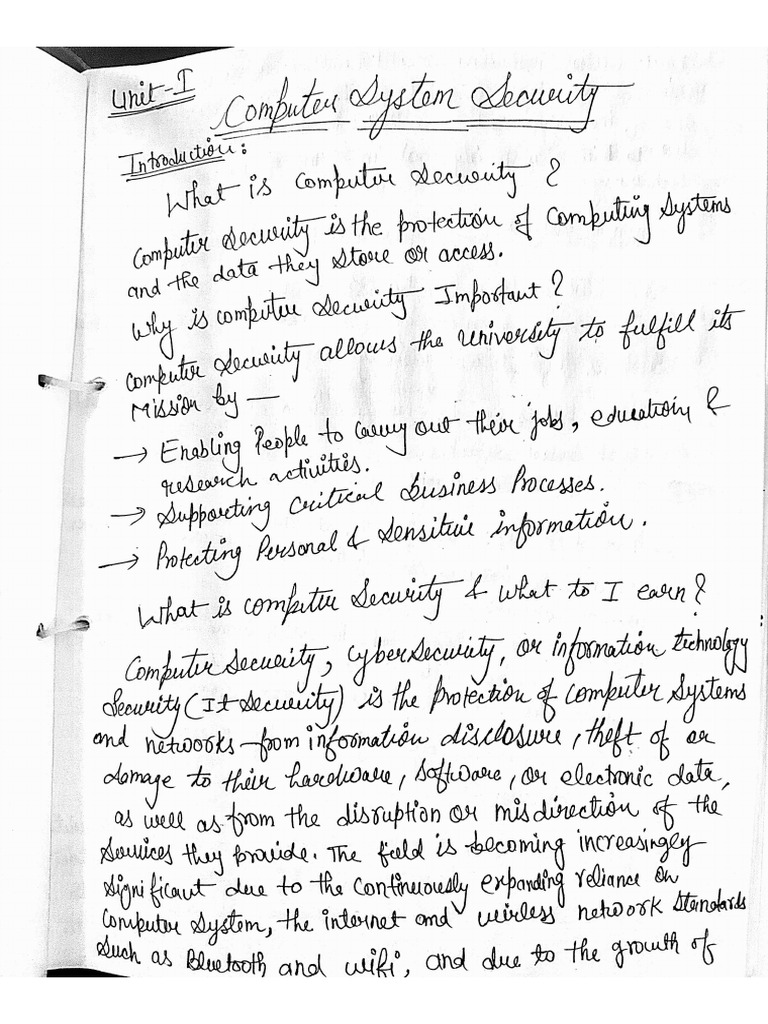 Unit-I
Computer System Security
Introduction:
What is computer security ?
Computer Security is the protection of Computing Systems
and the data they store or access.
Why is computer Security Important ?
Computer Security allows the University to fulfill its
Mission by —
→ Enabling People to carry out their jobs, education &
research activities.
→ Supporting critical Business Processes.
→ Protecting Personal & Sensitive information.
What is computer Security & what to I earn?
Computer Security, cybersecurity, or information technology
Security (It Security) is the protection of computer Systems
and networks from information disclosure, theft of or
damage to their hardware, software, or electronic data,
as well as from the disruption or misdirection of the
Services they provide. The field is becoming increasingly
significant due to the continuously expanding reliance on
Computer System, the internet and wireless network Standards
Such as Bluetooth and wifi, and due to the growth of